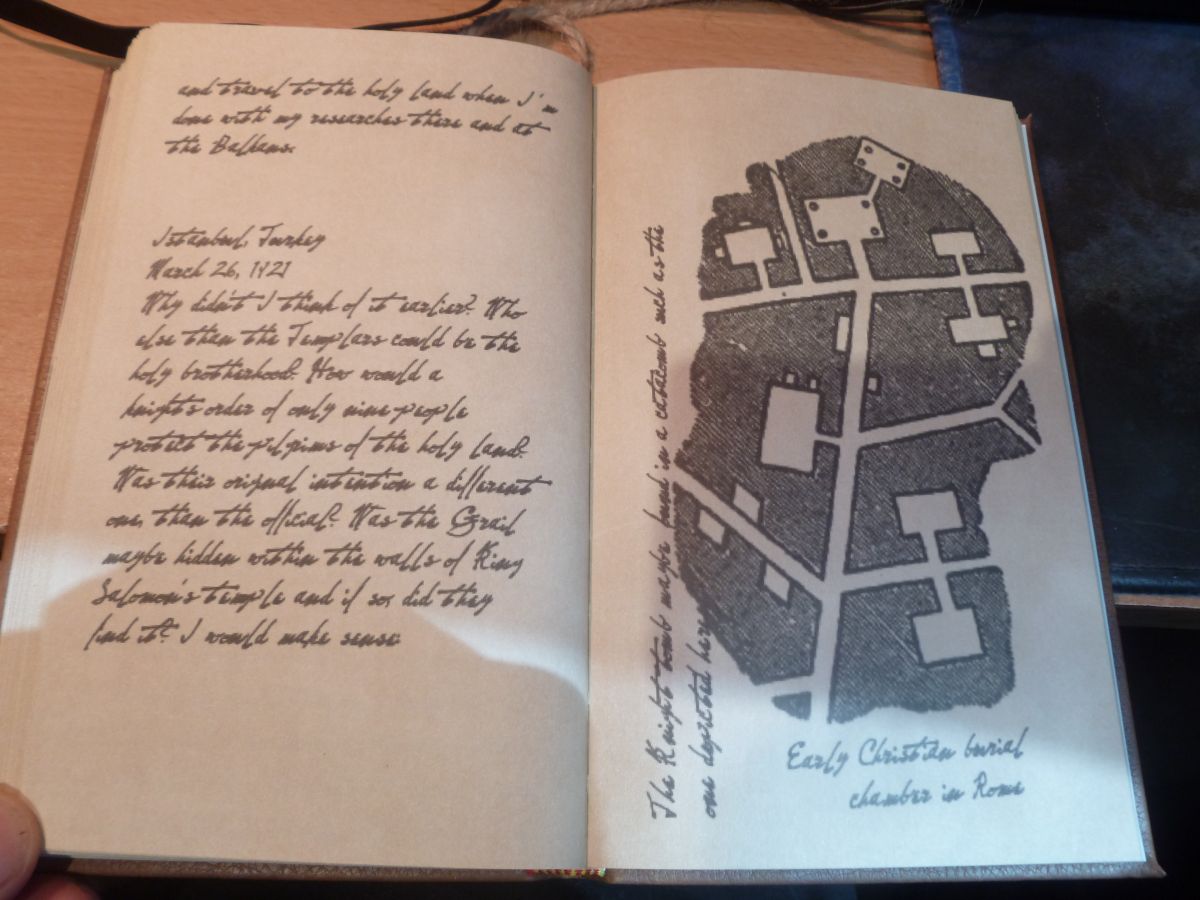 and travel to the holy land when I'm
done with my researches there and at
the Balkans.
Istanbul, Turkey
March 26, 1921
Why didn't I think of it earlier? Who
else than the Templars could be the
holy brotherhood? How would a
knight's order of only nine people
protect the pilgrims of the holy land?
Was their original intention a different
one, than the official? Was the Grail
maybe hidden within the walls of King
Salomon's temple and if so, did they
find it? I would make sense.
The Knight tomb maybe found in a catacomb such as the
one depicted here
Early Christian burial
chamber in Rome